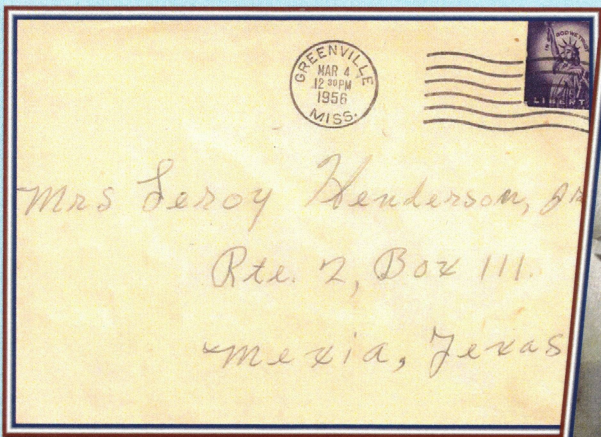 GREENVILLE
MAR 4
12 30 PM
1956
MISS.
IN GOD WE TRUST
LIBERTY
Mrs Leroy Henderson, Jr
Rte. 2, Box 111.
Mexia, Texas